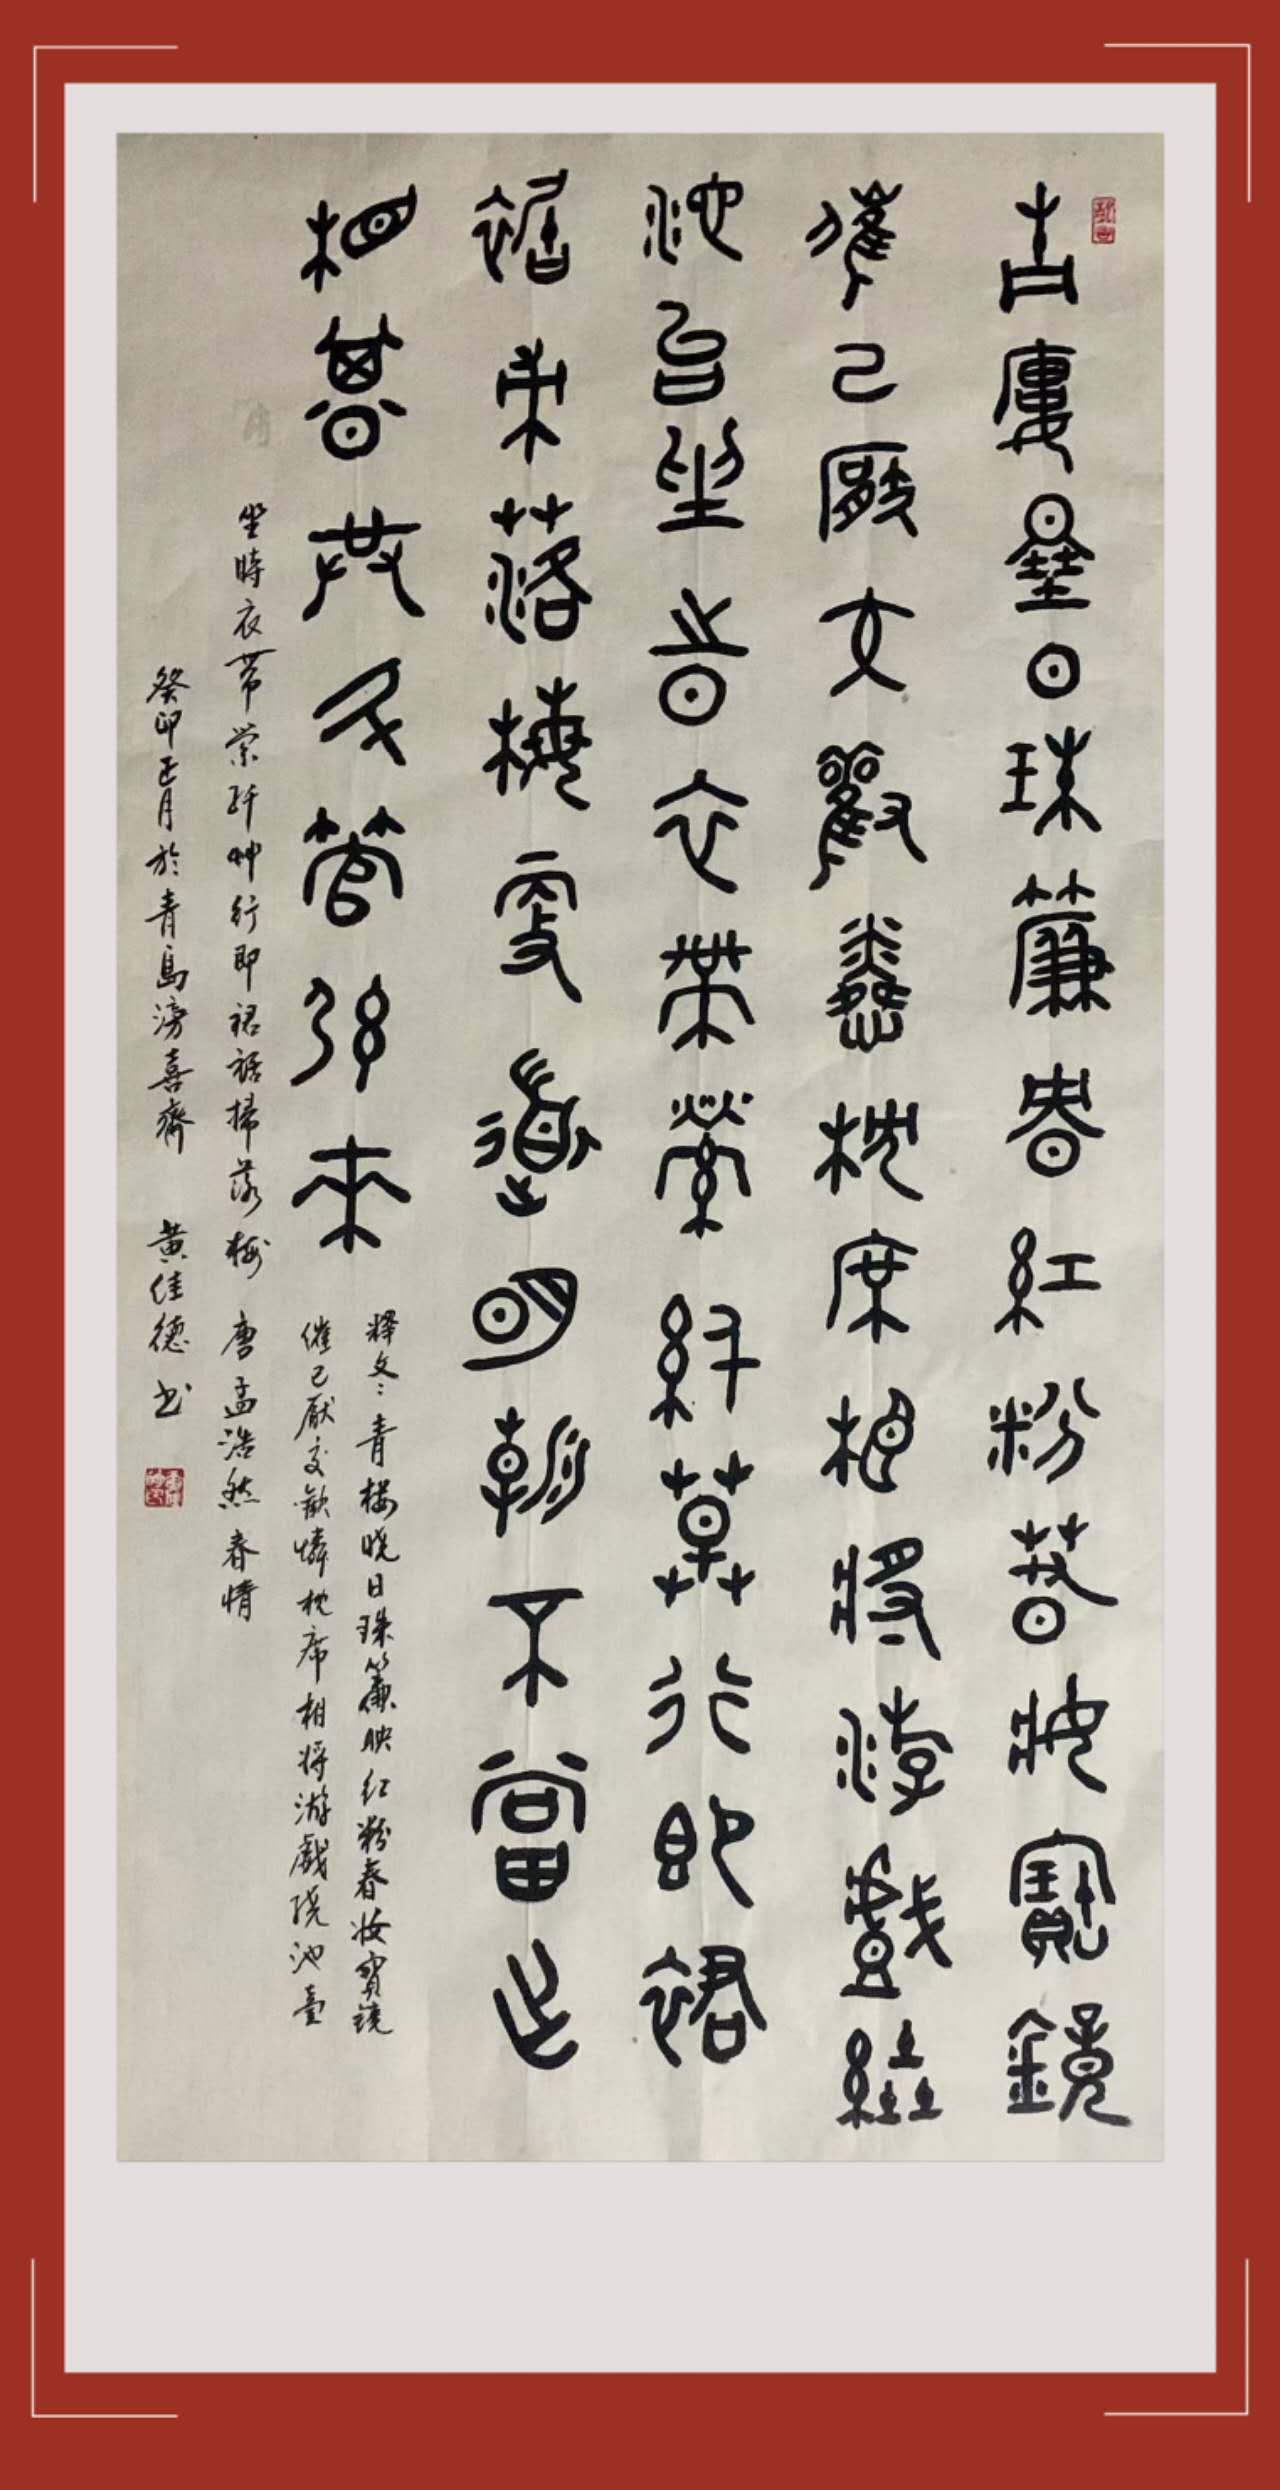 青樓曉日珠簾映紅粉春妝寶鏡
催已厭交歡憐枕席相將游戲繞
池台坐時衣帶縈紆草行即裙
裾掃落梅更道明朝不當乍
相期共斗管弦來
释文：青楼晓日珠簾映红粉春妆寶镜
催已厭交歡憐枕席相将游戲绕池臺
坐時衣带萦纤艸行即裙裾掃落梅 唐孟浩然春情
癸卯正月於青島滂喜齋 黄佳德书